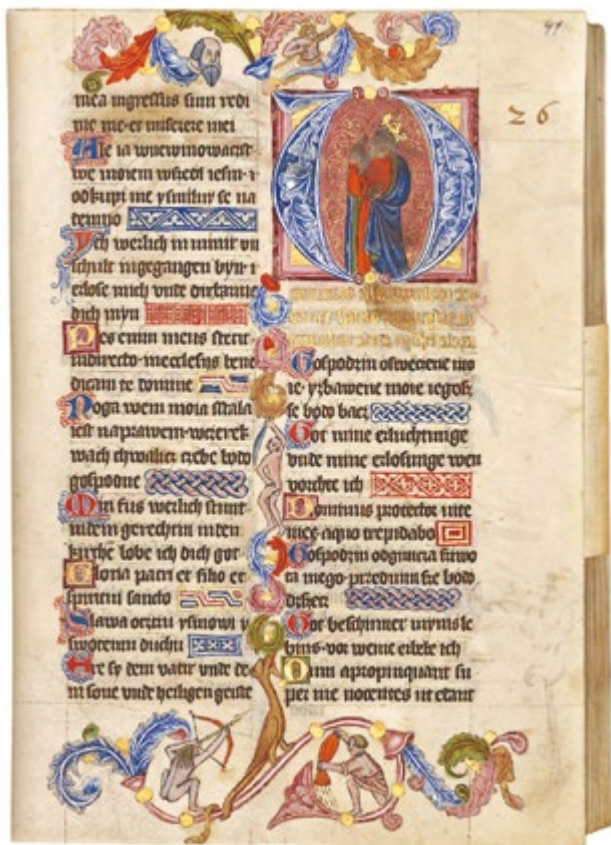 26
mea ingressus sum redi
me me·et miserere mei
Ale ia
we moiem wszedl iesm·i
odkupi me ysmiluy se na
demno
Ich werlich in minir vn
schult ingegangen byn·
erlose mich vnde dirbarme
dich myn
Pes enim meus stetit
indirecto·inecclesiis bene
dicam te domine
Noga wem moia stala
iest naprawem·wczerek
wach chwalicz czebe bodo
gospodne
Min fus werlich stunt
indem gerechtin inden
kirche lobe ich dich got
Gloria patri et filio et
spiritui sancto
Slawa oczczu ysinowi y
swotemu duchu
Ere sy dem vatir vnde de
m sone vnde heiligen geiste
D
Gospodzin oswecene mo
ie·yzbawene moie iegosz
se bodo bacz
Got mine erluchtunge
vnde mine erlosunge wen
vorchte ich
Dominus protector vite
mee·aquo trepidabo
Gospodzin
ta mego· bodo
Got beschirmer mynis le
bins·vor weme ich
Dum apropinquant su
per me nocentes ut edant